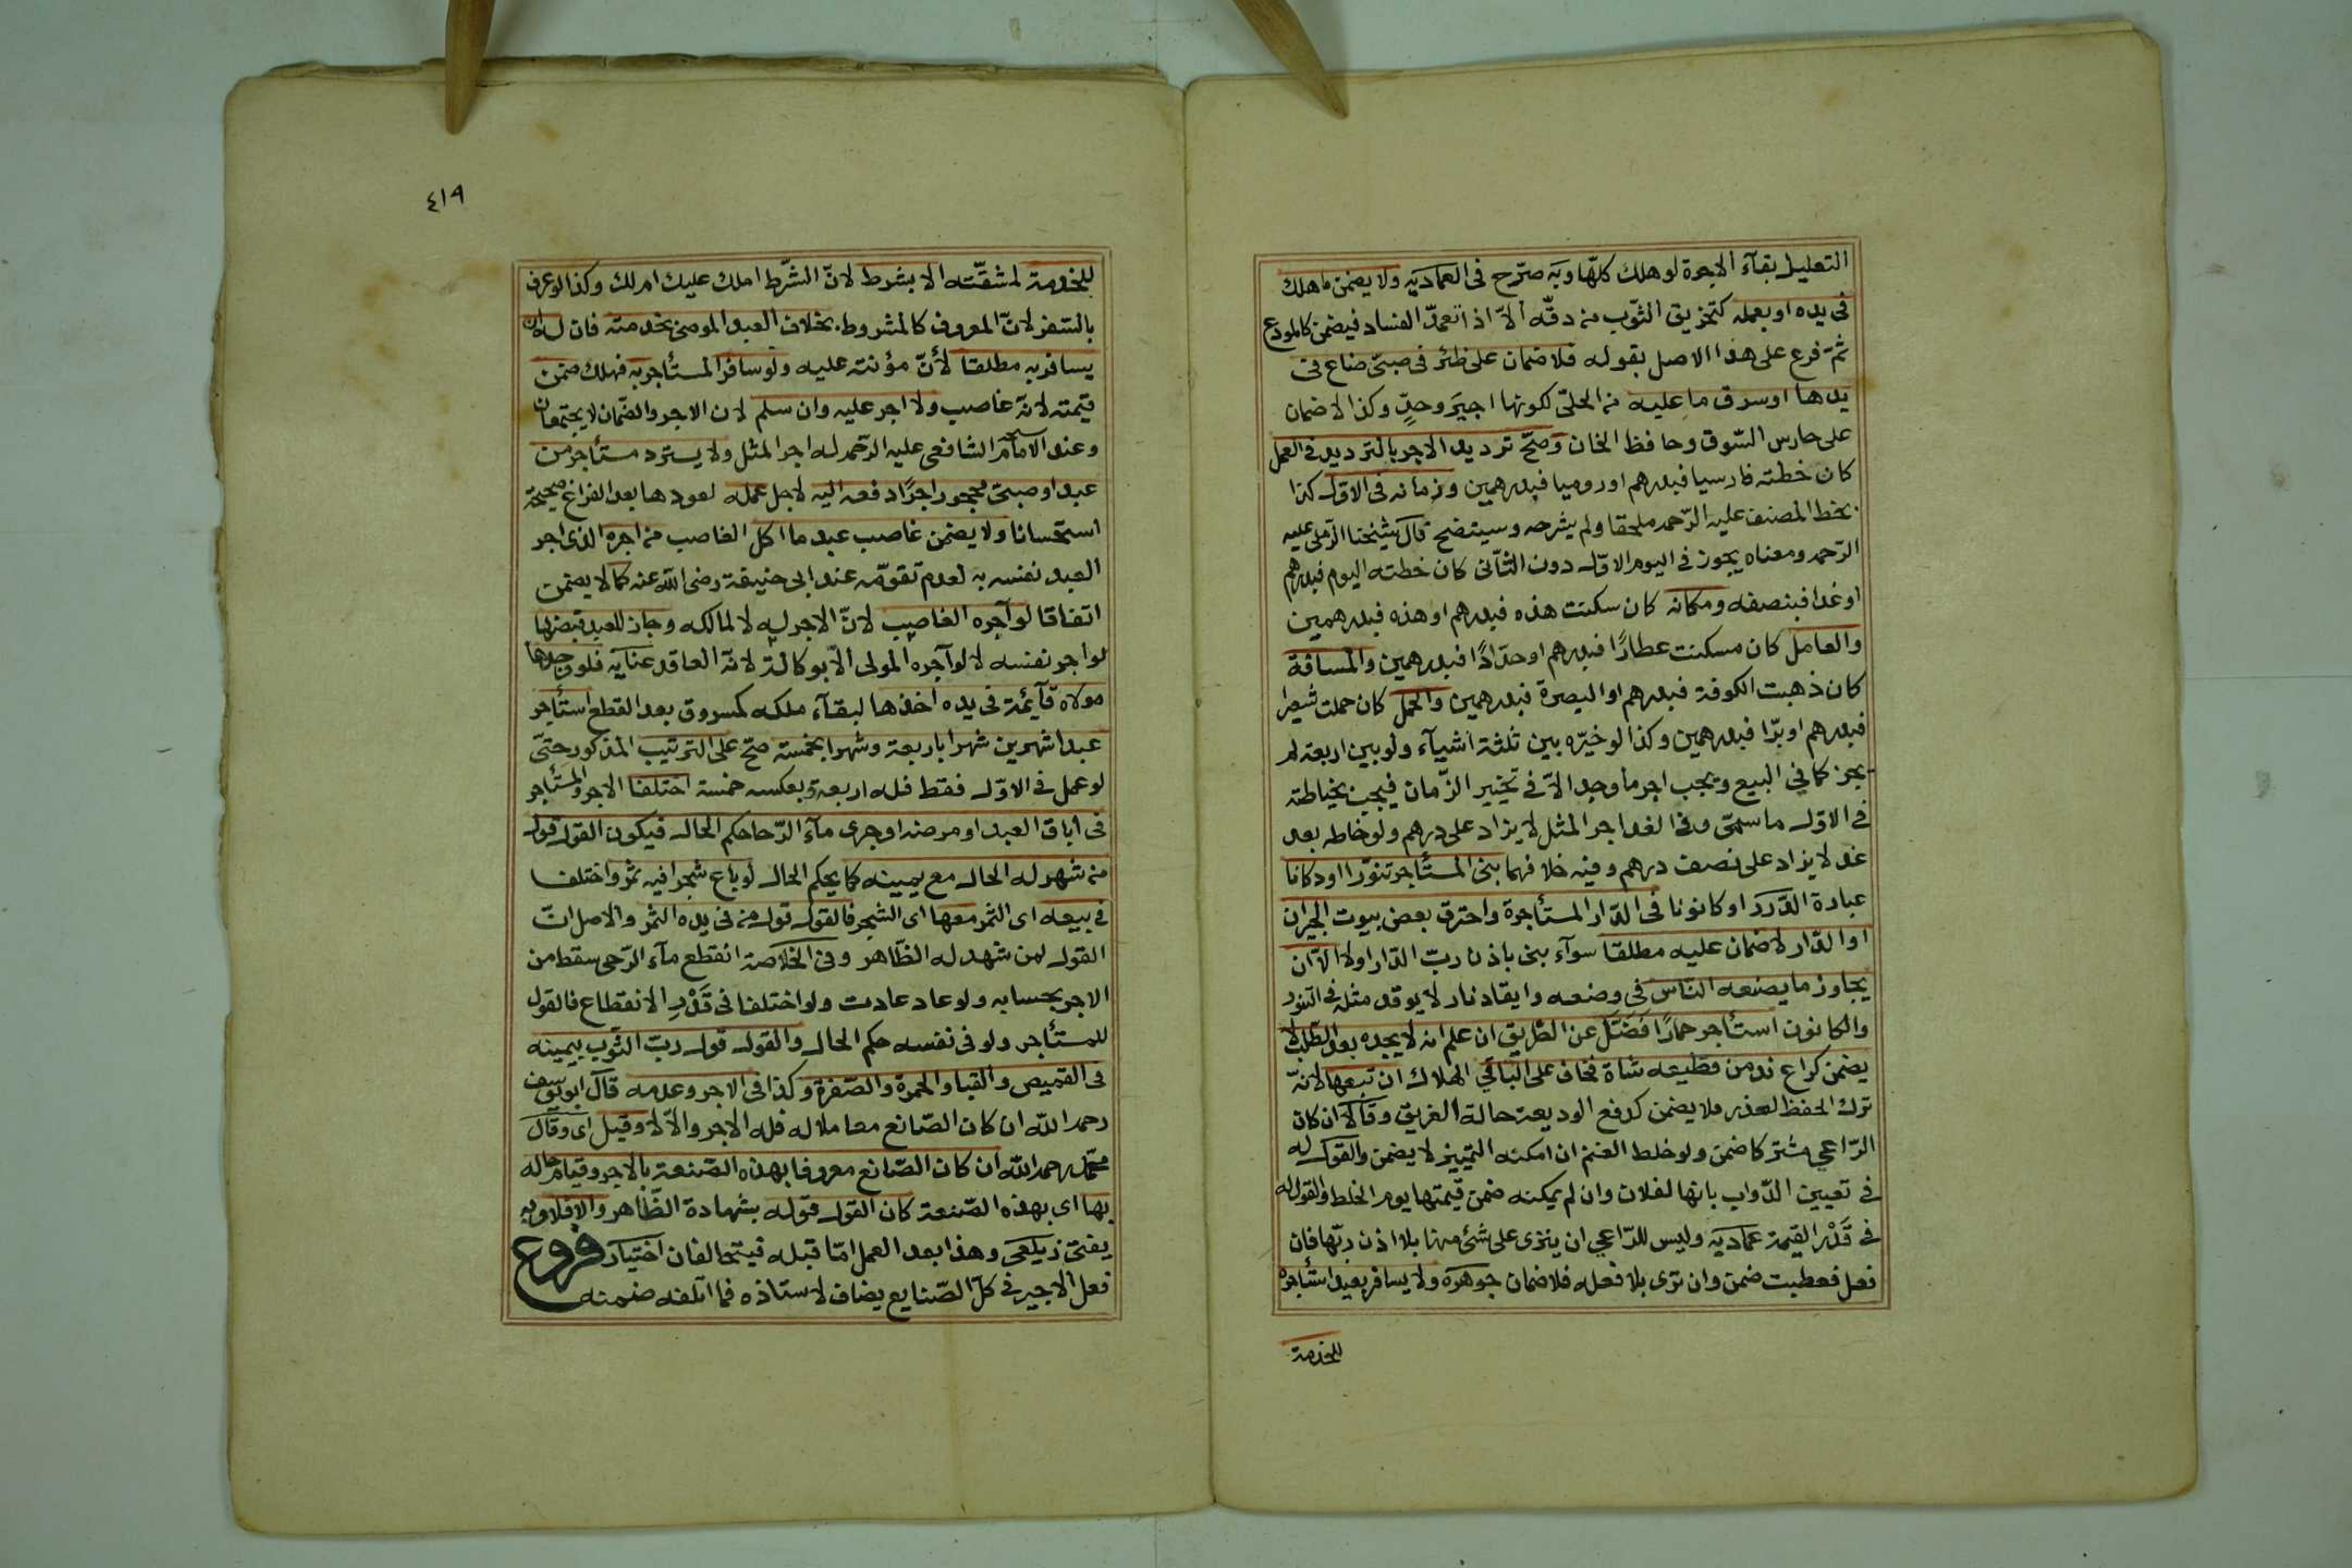 التعليل بقآء الاجرة لو هلك كلّها وبه صرّح فى العماديه ولا يضمن ما هلك
فى يده او بعمله كتخزيق الثّوب من دقّه الاّ اذا تعمدّ الفساد فيضمن كالمودع
ثمّ فرع على هذا الاصل بقوله فلا ضمان على ظئر فى صبىّ ضاع فى
يدها او سرق ما عليه من الحلىّ لكونها اجيرَ وحدٍ وكذا لا ضمان
على حارس السّوق وحافظ الخان وصحّ ترديد الاجر بالترديد فى العمل
كان خطته فارسيا فبدرهم او روميا فبدرهمين وزمانه فى الاول كذا
بخط المصنف عليه الرّحمه ملحقا ولم يشرحه وسيتضح قال شيخنا الرّملى عليه
الرّحمه ومعناه يجوز فى اليوم الاوّل دون الثّانى كان خطته اليوم فبدرهم
او غدا فبنصفه ومكانه كان سكنت هذه فبدرهم او هذه فبدرهمين
والعامل كان مسكنت عطارًا فبدرهم او حدّادًا فبدرهمين والمسافة
كان ذهبت الكوفة فبدرهم او البصرة فبدرهمين والحمل كان حملت شعيرا
فبدرهم او برّا فبدرهمين وكذا لو خيّره بين ثلثة اشيآء ولو بين اربعة لم
يجز كما في البيع ويجب اجر ما وجد الاّ فى تخيير الزّمان فيجب بخياطته
فى الاوّل ما سمّى وفى الغد اجر المثل لا يزاد على درهم ولو خاطه بعد
غد لا يزاد على نصف درهم وفيه خلافهما بنى المستأجر تنوّرا او دكانا
عبارة الدّرر او كانونا فى الدّار المستأجرة واحترق بعض بيوت الجيران
او الدّار لا ضمان عليه مطلقا سوآء بنى باذن ربّ الدّار او لا الاّ ان
يجاوز ما يصنعه النّاس فى وضعه وايقاد نار لا يوقد مثله فى التنور
والكانون استأجر حمارًا فضلّ عن الطّريق ان علم انه لا يجده بعد الطّلب لا
يضمن كراع ند من قطيعه شاة فخاف على الباقي الهلاك ان تبعها لانّه
ترك الحفظ لعذر فلا يضمن كدفع الوديعة حالة الغريق وقالا ان كان
الرّاعي مشتركا ضمن ولو خلط الغنم ان امكنه التمييز لا يضمن والقول له
فى تعيين الدّواب بانها لفلان وان لم يمكنه ضمن قيمتها يوم الخلط والقول له
فى قَدْر القيمة عماديه وليس للرّاعي ان ينزى على شئ منها بلا اذن ربّها فان
فعل فعطبت ضمن وان نزى بلا فعله فلا ضمان جوهره ولا يسافر بعبد استأجره
للخدمة
٤١٩
للخدمة لمشقّته الا بشرط لانّ الشّرط املك عليك ام لك وكذا لو عرف
بالسّفر لانّ المعروف كالمشروط بخلاف العبد الموصى بخدمته فان له ان
يسافر به مطلقا لأنّ مؤنته عليه ولو سافر المستأجر به فهلك ضمن
قيمته لانه غاصب ولا اجر عليه وان سلم لان الاجر والضّمان لا يجتمعان
وعند الامام الشافعى عليه الرّحمه له اجر المثل ولا يسترد مستأجر من
عبد او صبىّ محجور اجرًا دفعه اليه لاجل عمله لعودها بعد الفراغ صحيحة
استحسانا ولا يضمن غاصب عبد ما اكل الغاصب من اجره الذى اجر
العبد نفسه به لعدم تقوّمه عند ابى حنيفة رضى الله عنه كما لا يضمن
اتفاقا لو آجره الغاصب لانّ الاجر له لا لمالكه وجاز للعبد قبضها
لو اجر نفسه لا لو آجره المولى الاّ بوكالة لانّه العاقد عنايه فلو وجدها
مولاه قآئمة فى يده اخذها لبقآء ملكه كمسروق بعد القطع استأجر
عبدا شهرين شهرا باربعة وشهرا بخمسة صحّ على الترتيب المذكور حتّى
لو عمل فى الاوّل فقط فله اربعة وبعكسه خمسة اختلفا الاجر والمستأجر
فى اباق العبد او مرضه او جرى مآء الرّحا حكم الحال فيكون القول قول
من شهد له الحال مع يمينه كما يحكم الحال لو باع شجرا فيه ثمر واختلفا
فى بيعه اى الثمر معها اى الشجر فالقول قول من فى يده الثمر والاصل انّ
القول لمن شهد له الظّاهر وفى الخلاصة انقطع مآء الرّحى سقط من
الاجر بحسابه ولو عاد عادت ولو اختلفا فى قَدْرِ الانقطاع فالقول
للمستأجر ولو فى نفسه حكم الحال والقول قول ربّ الثّوب بيمينه
فى القميص والقبا والحمرة والصّفرة وكذا فى الاجر وعدمه قال ابو يوسف
رحمه الله ان كان الصّانع معاملا له فله الاجر والاّ لا وقيل اى وقال
محمّد رحمه الله ان كان الصّانع معروفا بهذه الصّنعة بالاجر وقيام حاله
بها اى بهذه الصّنعة كان القول قوله بشهادة الظّاهر والا فلا وبه
يفتى زيلعى وهذا بعد العمل امّا قبله فيتحالفان اختيار فروع
فعل الاجير فى كلّ الصّنايع يضاف لاستاذه فما اتلفه ضمنه